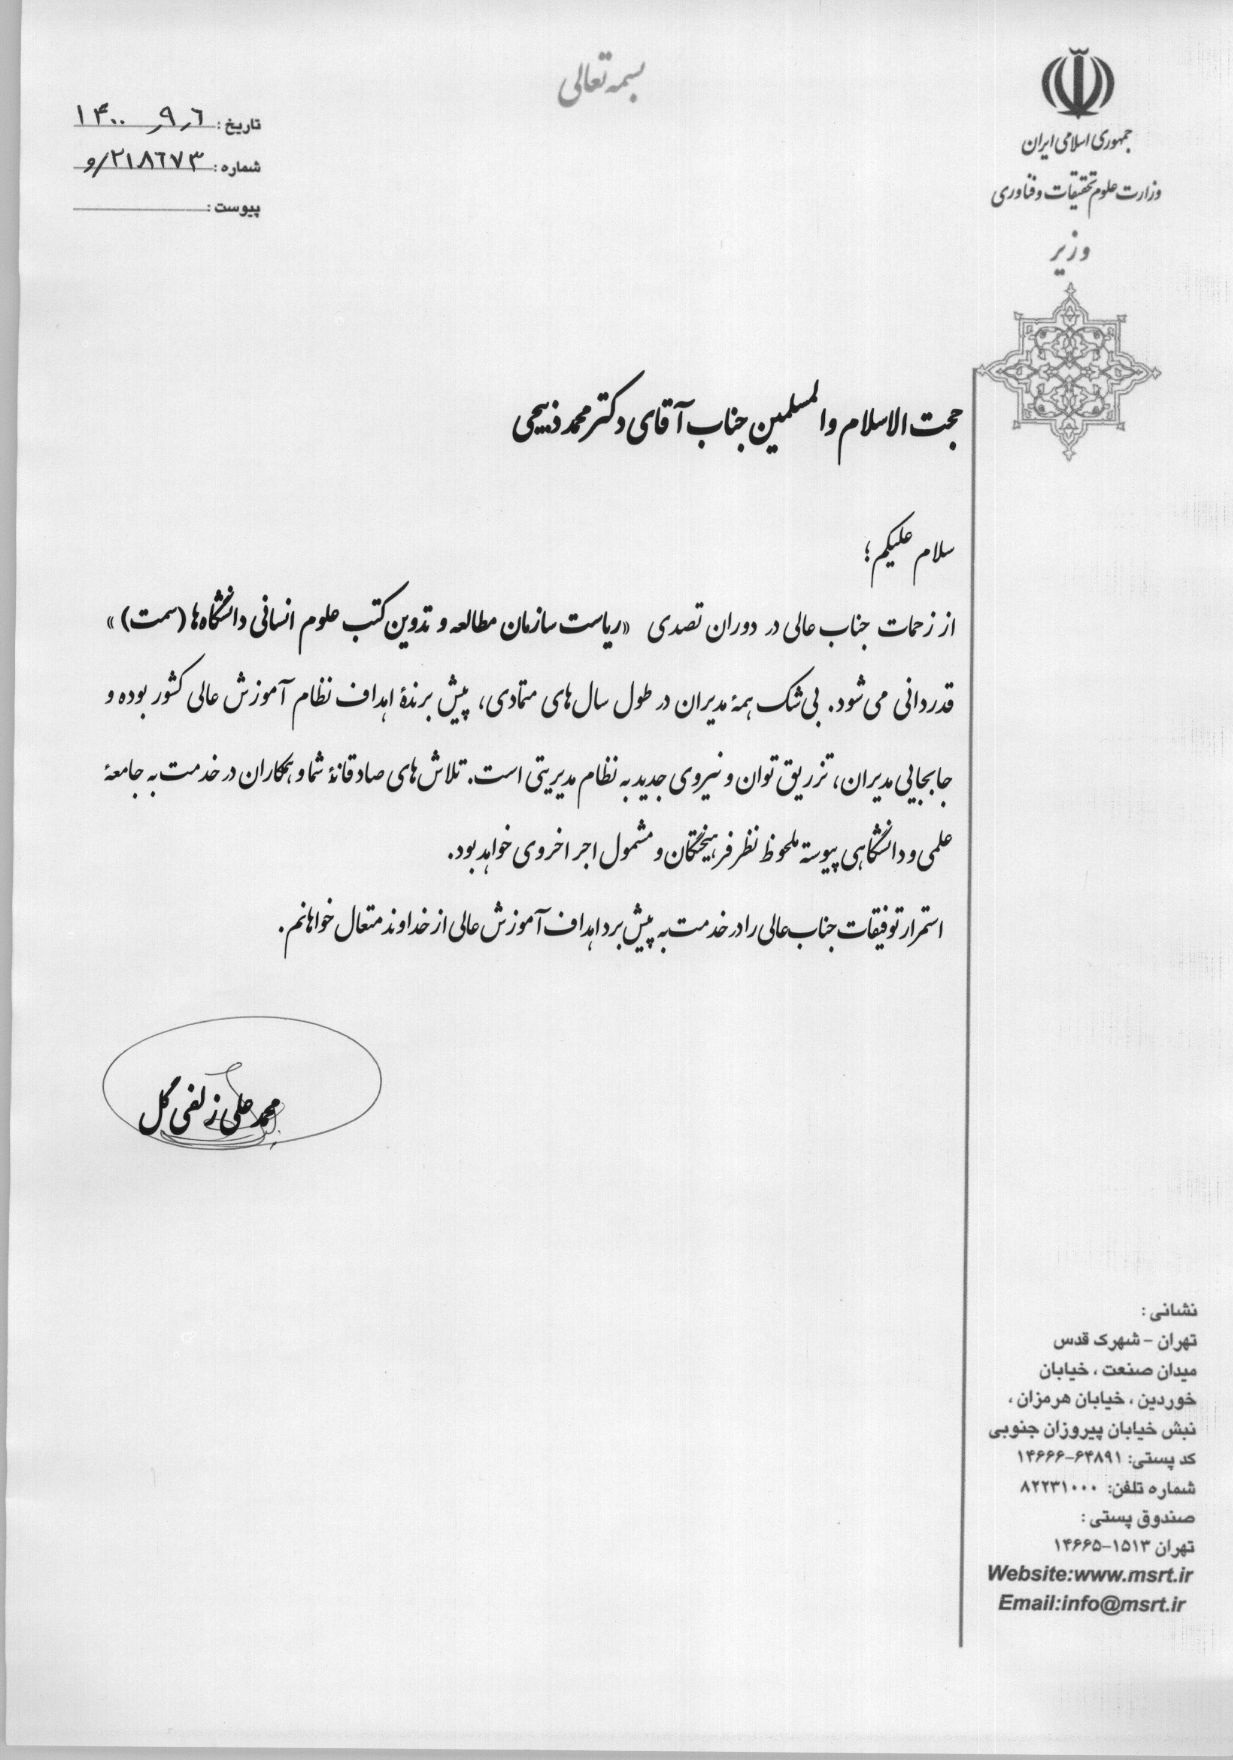 بسمه تعالی
جمهوری اسلامی ایران
وزارت علوم تحقیقات و فناوری
وزیر
تاریخ: ۱۴۰۰ر۹ر۶
شماره: ۲۱۸۶۷۳/و
پیوست:
حجت الاسلام والمسلمین جناب آقای دکتر محمد ذبیحی
سلام علیکم؛
از زحمات جناب عالی در دوران تصدی «ریاست سازمان مطالعه و تدوین کتب علوم انسانی دانشگاه‌ها (سمت)»
قدردانی می‌شود. بی‌شک همهٔ مدیران در طول سال‌های متمادی، پیش برندهٔ اهداف نظام آموزش عالی کشور بوده و
جابجایی مدیران، تزریق توان و نیروی جدید به نظام مدیریتی است. تلاش‌های صادقانهٔ شما و همکاران در خدمت به جامعهٔ
علمی و دانشگاهی پیوسته ملحوظ نظر فرهیختگان و مشمول اجر اخروی خواهد بود.
استمرار توفیقات جناب عالی را در خدمت به پیش برد اهداف آموزش عالی از خداوند متعال خواهانم.
محمد علی زلفی گل
نشانی:
تهران - شهرک قدس
میدان صنعت، خیابان
خوردین، خیابان هرمزان،
نبش خیابان پیروزان جنوبی
کد پستی: ۶۴۸۹۱-۱۴۶۶۶
شماره تلفن: ۸۲۲۳۱۰۰۰
صندوق پستی:
تهران ۱۵۱۳-۱۴۶۶۵
Website:www.msrt.ir
Email:info@msrt.ir